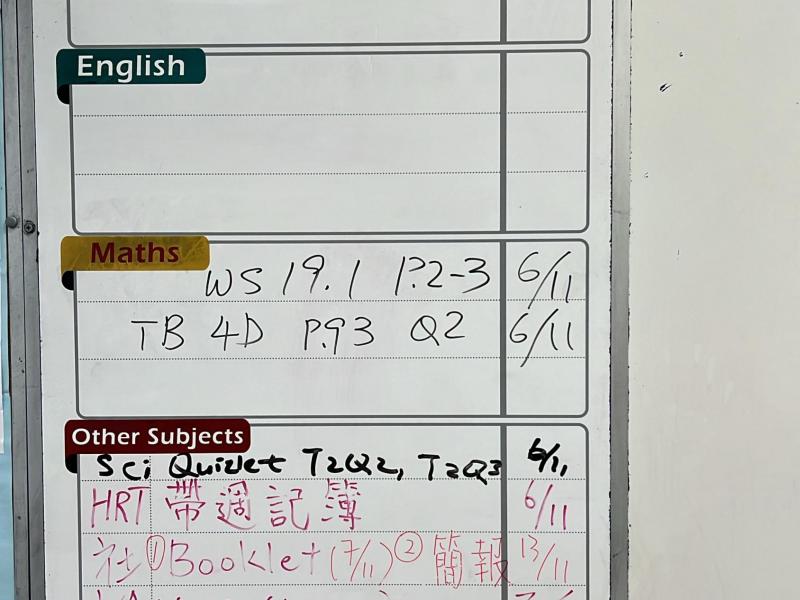 English
Maths
WS 19.1 P.2-3 6/11
TB 4D P.93 Q2 6/11
Other Subjects
Sci Quizlet T2Q2, T2Q3 6/11
HRT 帶週記簿 6/11
社 ① Booklet (7/11) ② 簡報 13/11